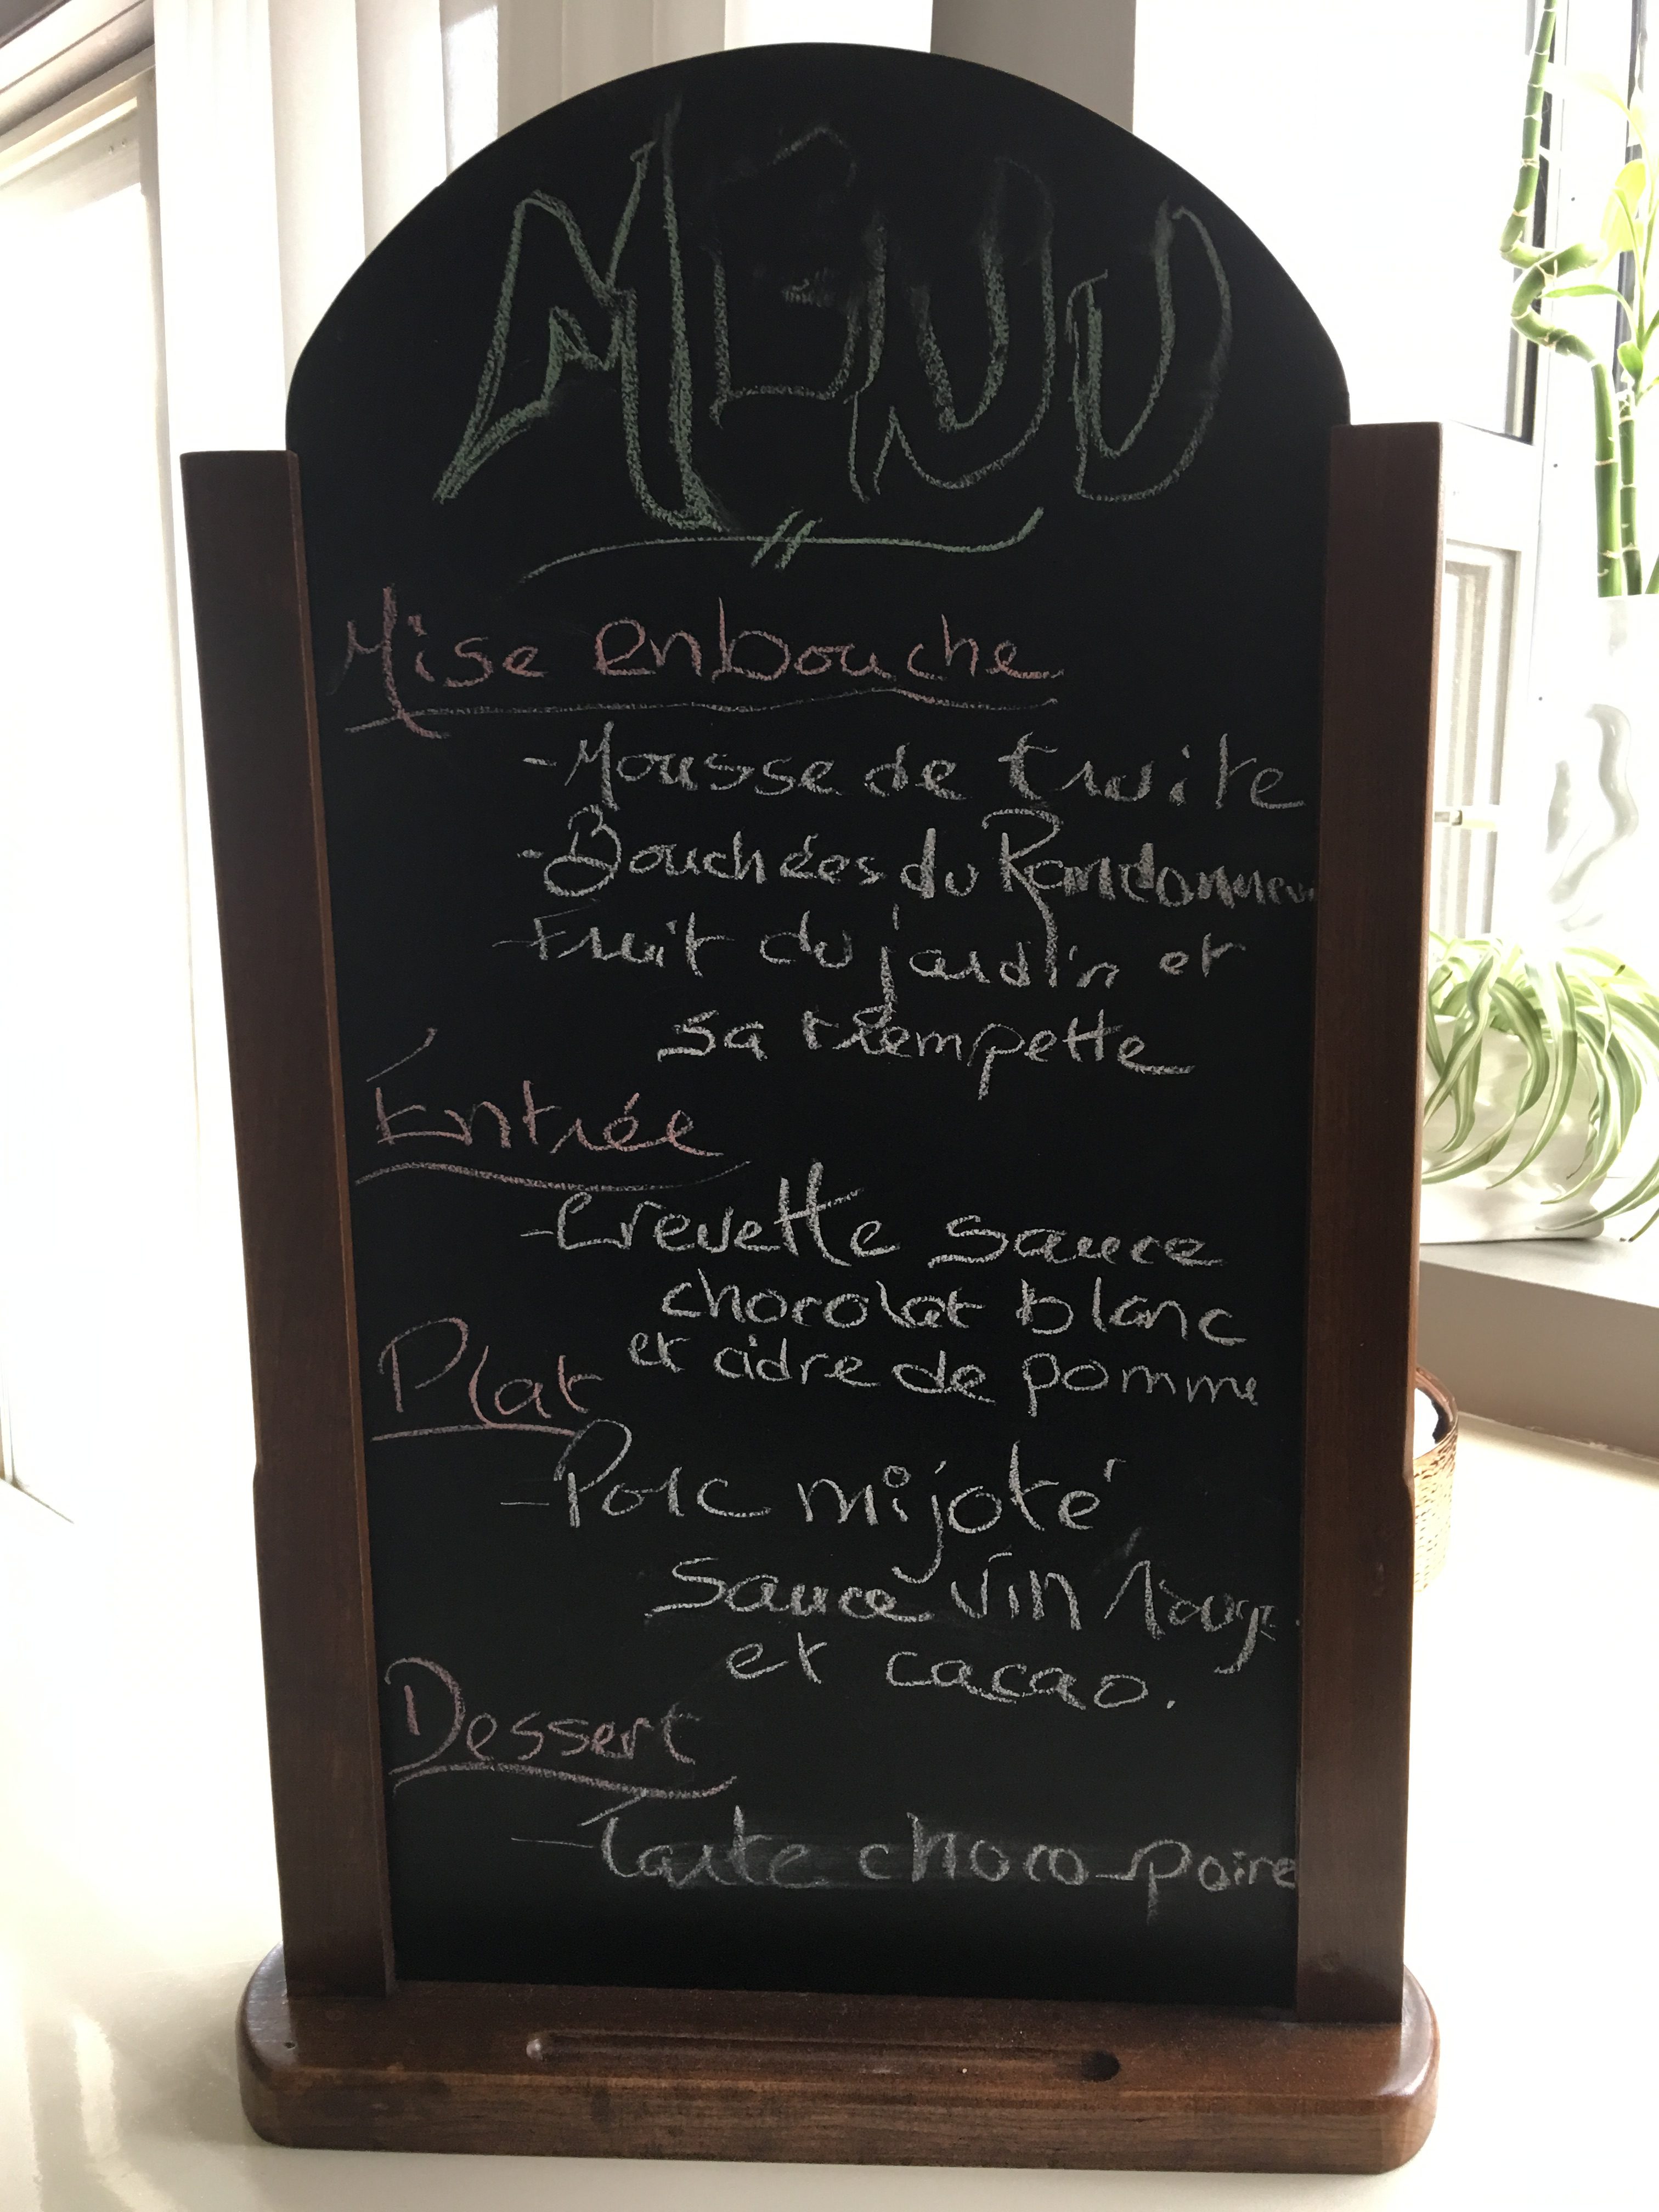 MENU
Mise en bouche
- Mousse de truite
- Bouchées du Randonneur
- Fruit du jardin et
sa trempette
Entrée
- Crevette sauce
chocolat blanc
et cidre de pomme
Plat
- Porc mijoté
sauce vin rouge
et cacao.
Dessert
- Tarte choco-poire